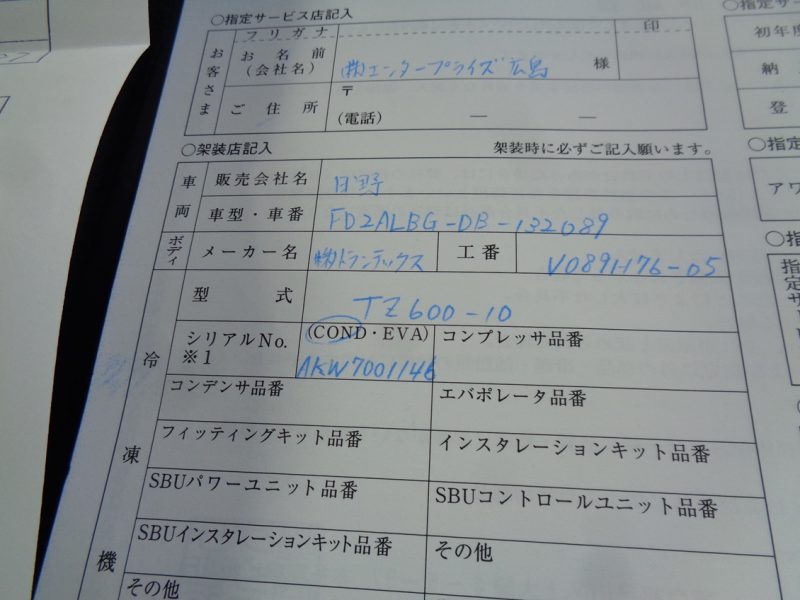 ○指定サービス店記入
お客さま
フリガナ
お名前
(会社名)
㈱エンタープライズ広島
様
印
ご住所
〒
(電話) ― ―
○架装店記入
架装時に必ずご記入願います。
車両
販売会社名
日野
車型・車番
FD2ALBG-DB-132089
ボディ
メーカー名
㈱トランテックス
工番
V0891176-05
冷凍機
型式
TZ600-10
シリアルNo.
※1
(COND・EVA)
AKW7001146
コンプレッサ品番
コンデンサ品番
エバポレータ品番
フィッティングキット品番
インスタレーションキット品番
SBUパワーユニット品番
SBUコントロールユニット品番
SBUインスタレーションキット品番
その他
その他
初年度
納
登
○指定
アワ
○指